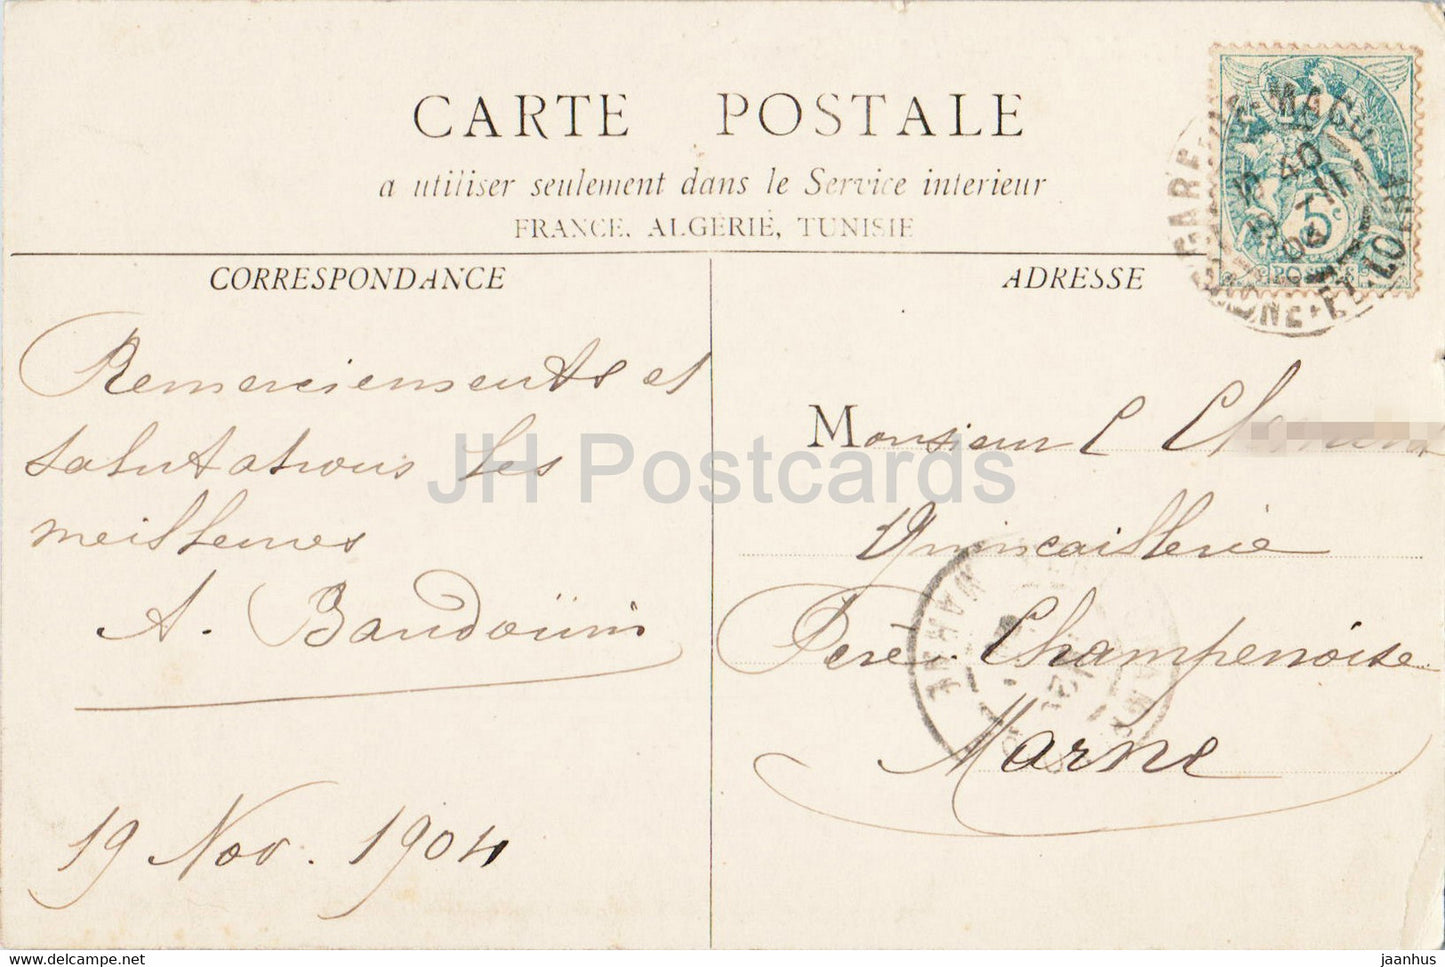 CARTE POSTALE
a utiliser seulement dans le Service interieur
FRANCE, ALGÉRIE, TUNISIE
CORRESPONDANCE
Remerciements et
salutations les
meilleures
A. Baudoüin
19 Nov. 1904
ADRESSE
Monsieur C
Quincaillerie
Fère Champenoise
Marne
5c
POSTES
GARE
MACON
SAONE-ET-LOIRE
MARNE
JH Postcards
www.hippostcard.com
jaanhus